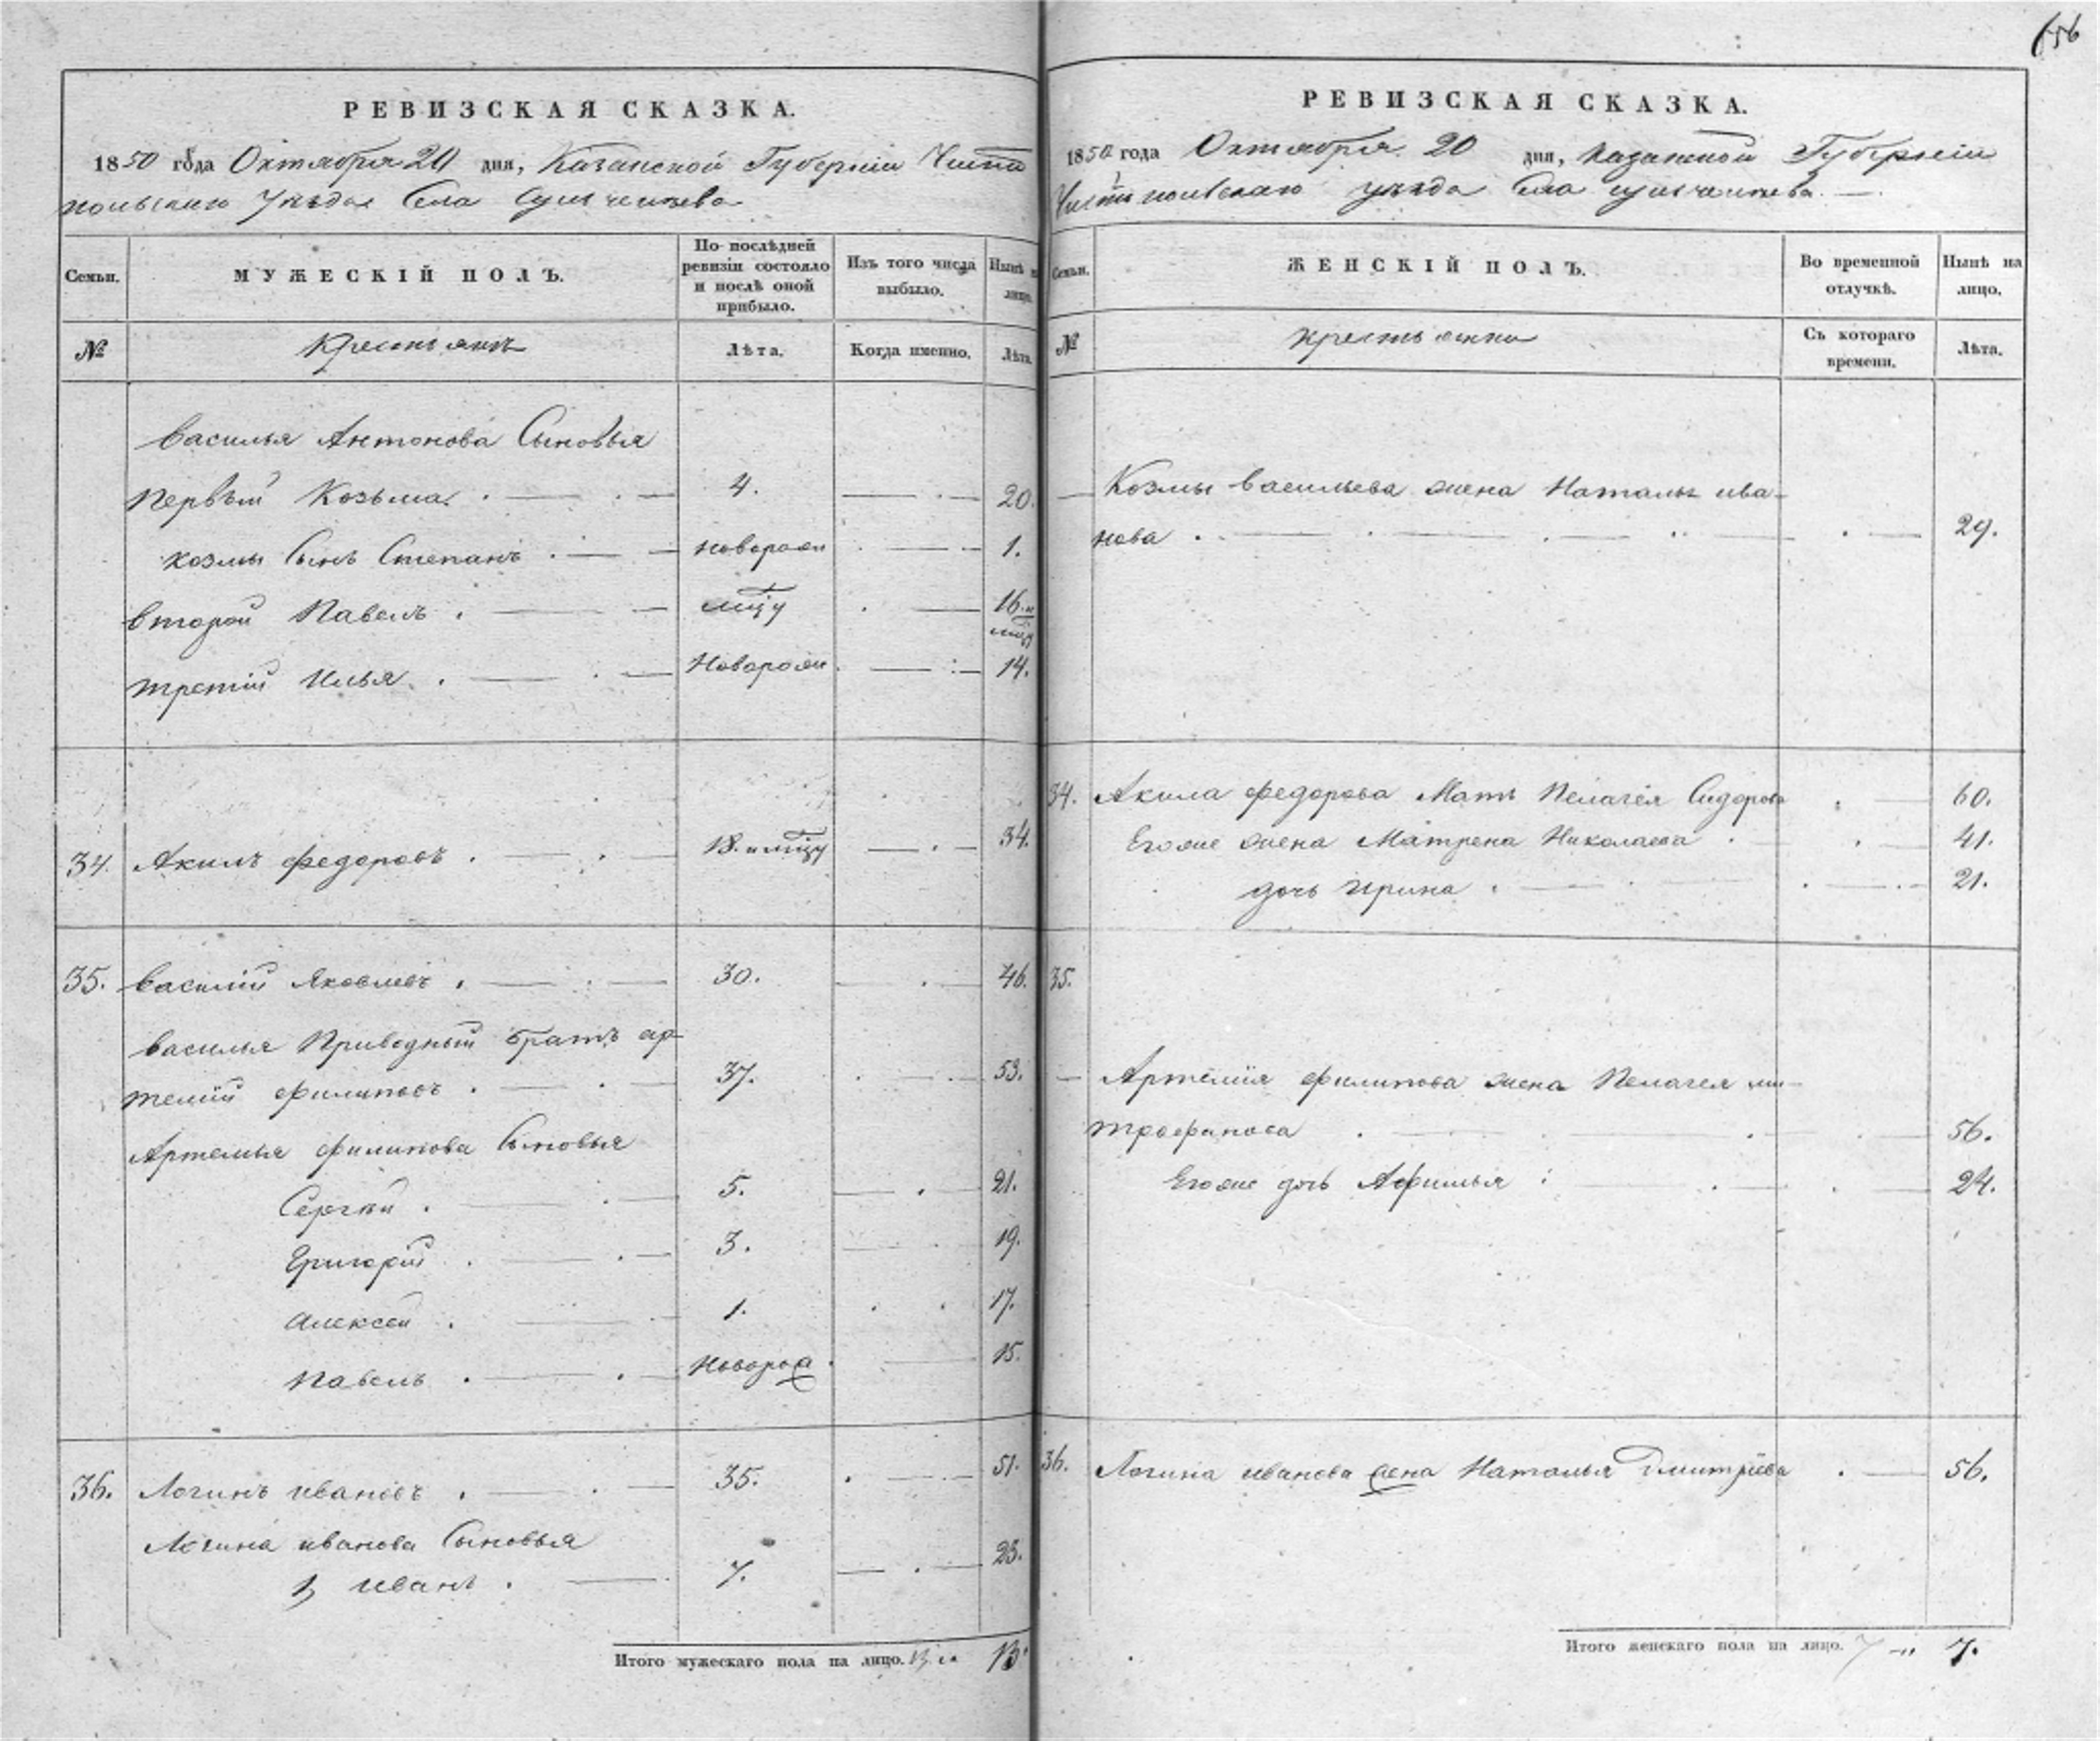 656
РЕВИЗСКАЯ СКАЗКА.
1850 года Октября 20 дня, Казанской Губернiи Чисто
польскаго Уѣзда Села
Семьи.
МУЖЕСКІЙ ПОЛЪ.
По послѣдней ревизіи состояло и послѣ оной прибыло.
Изъ того числа выбыло.
Нынѣ на лицо.
№
Крестьянъ
Лѣта.
Когда именно.
Лѣта.
Василья Антонова Сыновья
Первый Козьма 4. 20.
Козмы Сынъ Степанъ новорож 1.
второй Павелъ мцу 16. и мцу
третiй Илья Новорож 14.
34. Акилъ Федоровъ 18. и мцу 34.
35. Василiй Яковлевъ 30. 46.
Василья Приводный братъ Ар
темiй Филиповъ 37. 53.
Артемья Филипова Сыновья
Сергѣй 5. 21.
Григорiй 3. 19.
Алексей 1. 17.
Павелъ Новорож 15.
36. Логинъ Ивановъ 35. 51.
Логина Иванова Сыновья
1, Иванъ 7. 23.
Итого мужескаго пола на лицо. 13 13.
РЕВИЗСКАЯ СКАЗКА.
1850 года Октября 20 дня, Казанской Губернiи
Чистопольскаго уѣзда Села
Семьи.
ЖЕНСКІЙ ПОЛЪ.
Во временной отлучкѣ.
Нынѣ на лицо.
№
крестьянки
Съ котораго времени.
Лѣта.
Козмы Васильева жена Наталья Ива-
нова 29.
34. Акила Федорова Мать Пелагея Сидорова 60.
Егоже жена Матрена Николаева 41.
дочь Ирина 21.
35.
Артемiя Филипова жена Пелагея Ми-
трофанова 56.
Егоже дочь Афимья 24.
36. Логина Иванова жена Наталья Дмитрiева 56.
Итого женскаго пола на лицо. 7 7.